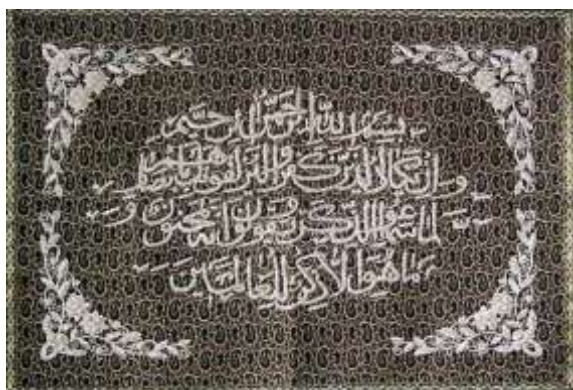 بسم الله الرحمن الرحيم
وان يكاد الذين كفروا ليزلقونك بابصارهم
لما سمعوا الذكر ويقولون انه لمجنون و
ما هو الا ذكر للعالمين